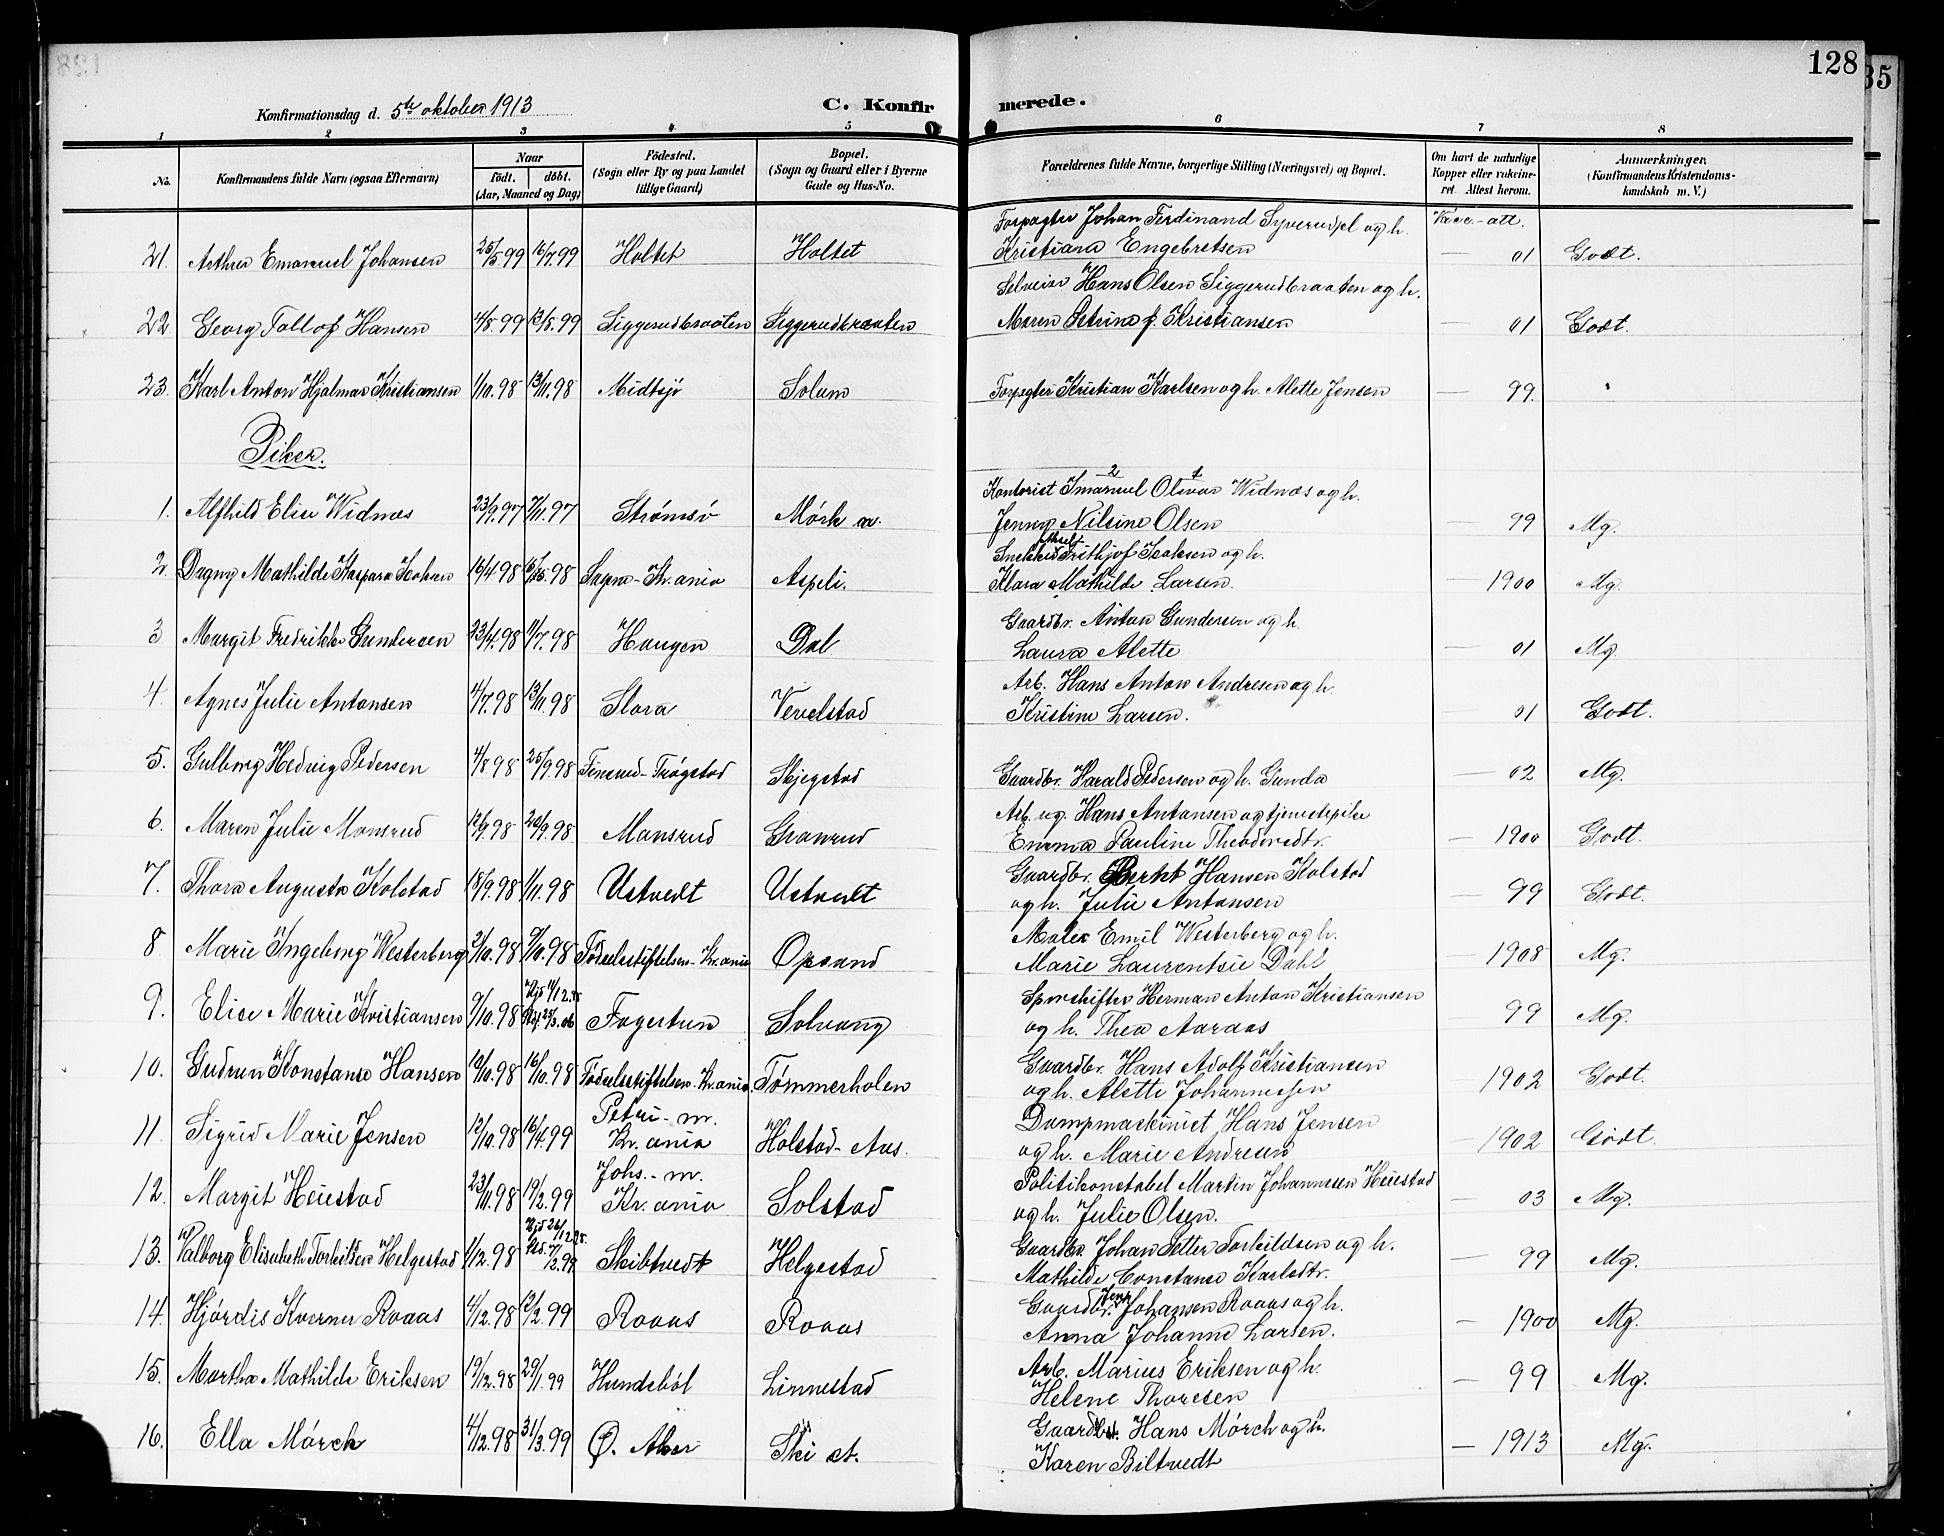 128
35
Konfirmationsdag d. 5te oktober 1913
C. Konfirmerede.
1 2 3 4 5 6 7 8
No. Konfirmandens fulde Navn (ogsaa Efternavn) Naar født. døbt. (Aar, Maaned og Dag) Fødested. (Sogn eller By og paa Landet tillige Gaard) Bopæl. (Sogn og Gaard eller i Byerne Gade og Hus-No. Forældrenes fulde Navne, borgerlige Stilling (Næringsvei) og Bopæl. Om havt de naturlige Kopper eller vakcineret. Attest herom. Anmærkninger. (Konfirmandens Kristendomskundskab m. V.)
Forpagter Johan Ferdinand og h. Vacc.-att.
21. Arthur Emanuel Johansen 25/5.99 16/7.99 Holtet Holtet Kristiana Engebretsen — 01 Godt.
Selveier Hans Olsen Siggerudbraaten og h.
22 Georg Tollof Hansen 4/8.99 13/8.99 Siggerudbraaten Siggerudbraaten Maren Petrine f. Kristiansen — 01 Godt.
23. Karl Anton Hjalmar Kristiansen 1/10.98 13/11.98 Midtsjø Solum Forpagter Kristian Karlsen og h. Alette Jensen — 99. "
Piker.
2 1
Kontorist Imanuel Olivar Widnæs og h.
1. Alfhild Elise Widnæs 23/9.97 7/11.97 Strømsø Mørk Jenny Nilsine Olsen — 99 Mg.
Snekker Frithjof og h.
2. Dagny Mathilde Kaspara 16/4.98 98 Sagene-Kr.ania Aspeli. Klara Mathilde Larsen. — 1900 Mg.
Gaardbr. Anton Gundersen og h.
3 Margit Fredrikke Gundersen 23/4.98 11/7.98 Haugen Dal Laura Alette — 01 Mg.
Arb. Hans Anton Andresen og h.
4. Agnes Julie Antonsen 4/7.98 13/11.98 Slora Vevelstad Kristine Larsen. — 01 Godt.
5. Gulborg Hedvig Pedersen 4/8 98 25/9.98 Finsrud-Trøgstad Skjegstad Gaardbr. Harald Pedersen og h. Gunda — 02 Mg.
Arb. ug. Hans Antonsen og tjenestepike
6. Maren Julie Monsrud 12/9.98 98 Monsrud Granrud Emma Pauline Theodorsdtr. — 1900 Godt.
Gaardbr. Berht Hansen Kolstad
7. Thora Augusta Kolstad 18/9.98 1/11.98 Ustvedt Ustvedt og h. Julie Antonsen — 99 Godt.
Maler Emil Westerberg og h.
8 Marie Ingeborg Westerberg 2/10.98 9/10.98 Fødselsstiftelsen-Kr.ania Opsand Marie Laurentsie Dahl — 1908 Mg.
Sporskifter Herman Anton Kristiansen
9. Elise Marie Kristiansen 9/10.98 Hjd 4/12.98 Fagertun Solvang og h. Thea Aaraas — 99 Mg.
Gaardbr. Hans Adolf Kristiansen
10. Gudrun Konstanse Hansen 10/10.98 16/10.98 Fødselsstiftelsen-Kr.ania. Tømmerholen og h. Alette Johannessen — 1902 Godt.
Petri-m. Dampmaskinist Hans Jensen
11. Sigrid Marie Jensen 12/10.98 16/4.99 Kr.ania Holstad-Aas. og h. Marie Andresen — 1902 Godt.
Johs.-m. Politikonstabel Martin Johannesen Heiestad
12. Margit Heiestad 23/11.98 19/2.99 Kr.ania Solstad og h. Julie Olsen. — 03 Mg.
Hjd 26/12.98. Gaardbr. Johan Petter Torkildsen og h.
13. Valborg Elisabeth Torkildsen Helgestad 1/12.98 Skibtvedt Helgestad Mathilde Constanse Karlsdtr. — 99 Mg.
Gaardbr. Jens Johansen Roaas og h.
14. Hjørdis Kverner Roaas 4/12.98 12/2.99 Roaas Roaas Anna Johanne Larsen. — 1900 Mg.
Arb. Marius Eriksen og h.
15. Martha Mathilde Eriksen 19/12.98 29/1.99 Hundsbøl Linnestad Helene Thoresen — 99 Mg.
Gaardbr. Hans Mørch og h.
16. Ella Mørch 4/12.98 31/3.99 Ø. Aker Ski st. Karen Biltvedt — 1913 Mg.